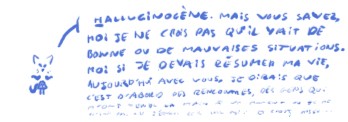 HALLUCINOGÈNE. MAIS VOUS SAVEZ,
MOI JE NE CROIS PAS QU'IL Y AIT DE
BONNE OU DE MAUVAISES SITUATIONS.
MOI SI JE DEVAIS RÉSUMER MA VIE,
AUJOURD'HUI AVEC VOUS, JE DIRAIS QUE
C'EST D'ABORD DES RENCONTRES, DES GENS QUI